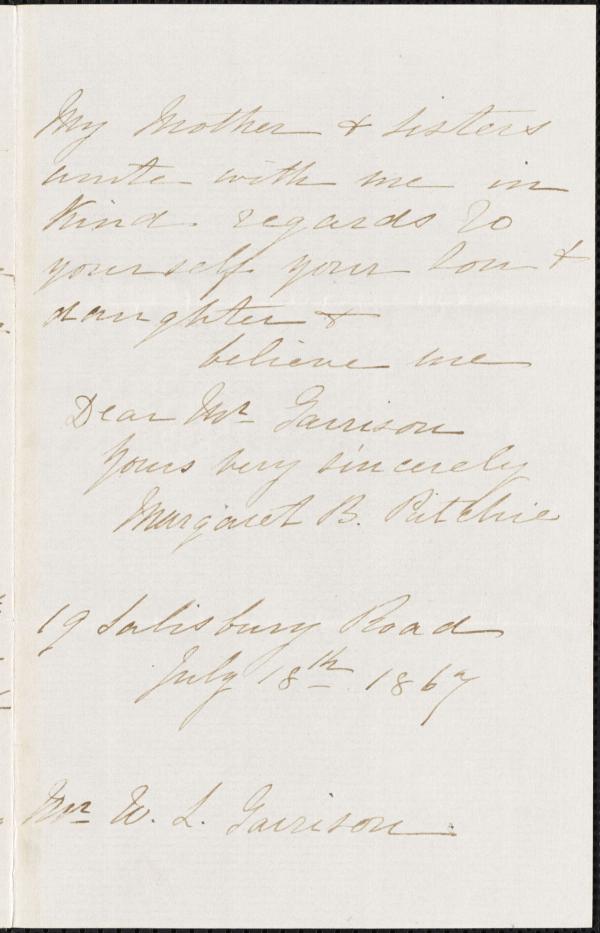 My Mother & Sisters
unite with me in
Kind regards to
yourself your Son &
daughter &
believe me
Dear Mr Garrison
Yours very sincerely
Margaret B. Ritchie
19 Salisbury Road
July 18th 1867
Mr W. L. Garrison